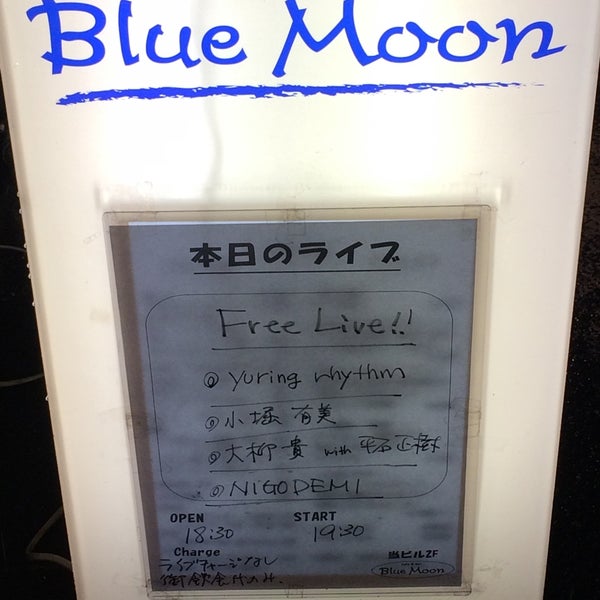 Blue Moon
本日のライブ
Free Live!!
◎ yuring rhythm
◎ 小堀 有美
◎ 大柳 貴 with 平石 正樹
◎ NIGODEMI
OPEN START
18:30 19:30
Charge
ライブチャージなし
御飲食代のみ、
当ビル2F
Blue Moon